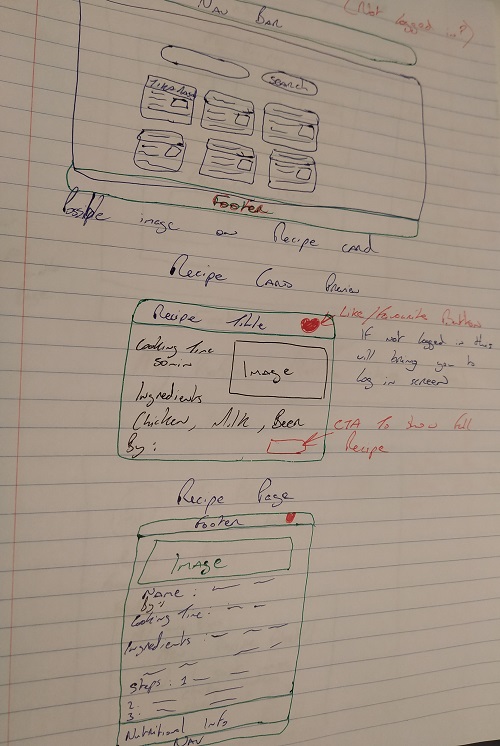 NAV BAR
(Not logged in?)
Search
Footer
Possible image on Recipe card
Recipe Card Preview
Recipe Title
Like/Favourite Button
If not logged in this
will bring you to
log in screen
Cooking Time
50min
Image
Ingredients
Chicken, Milk, Beer
By:
CTA To show full
Recipe
Recipe Page
Footer
Image
Name:
By:
Cooking Time:
Ingredients:
Steps: 1
2.
3.
Nutritional Info
NAV